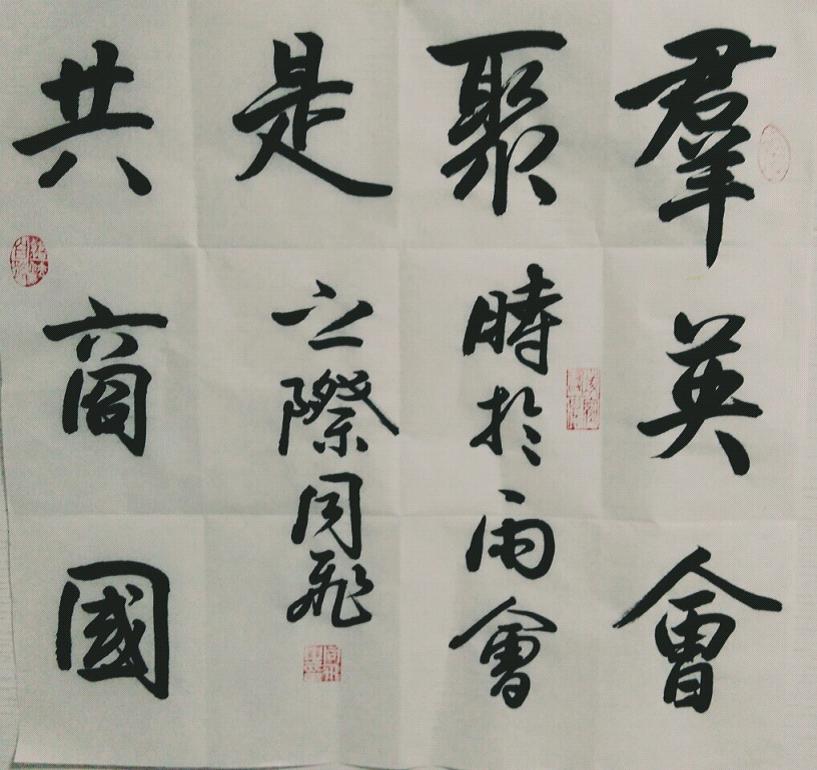 羣英會
聚時於兩會
是之際同飛
共商國